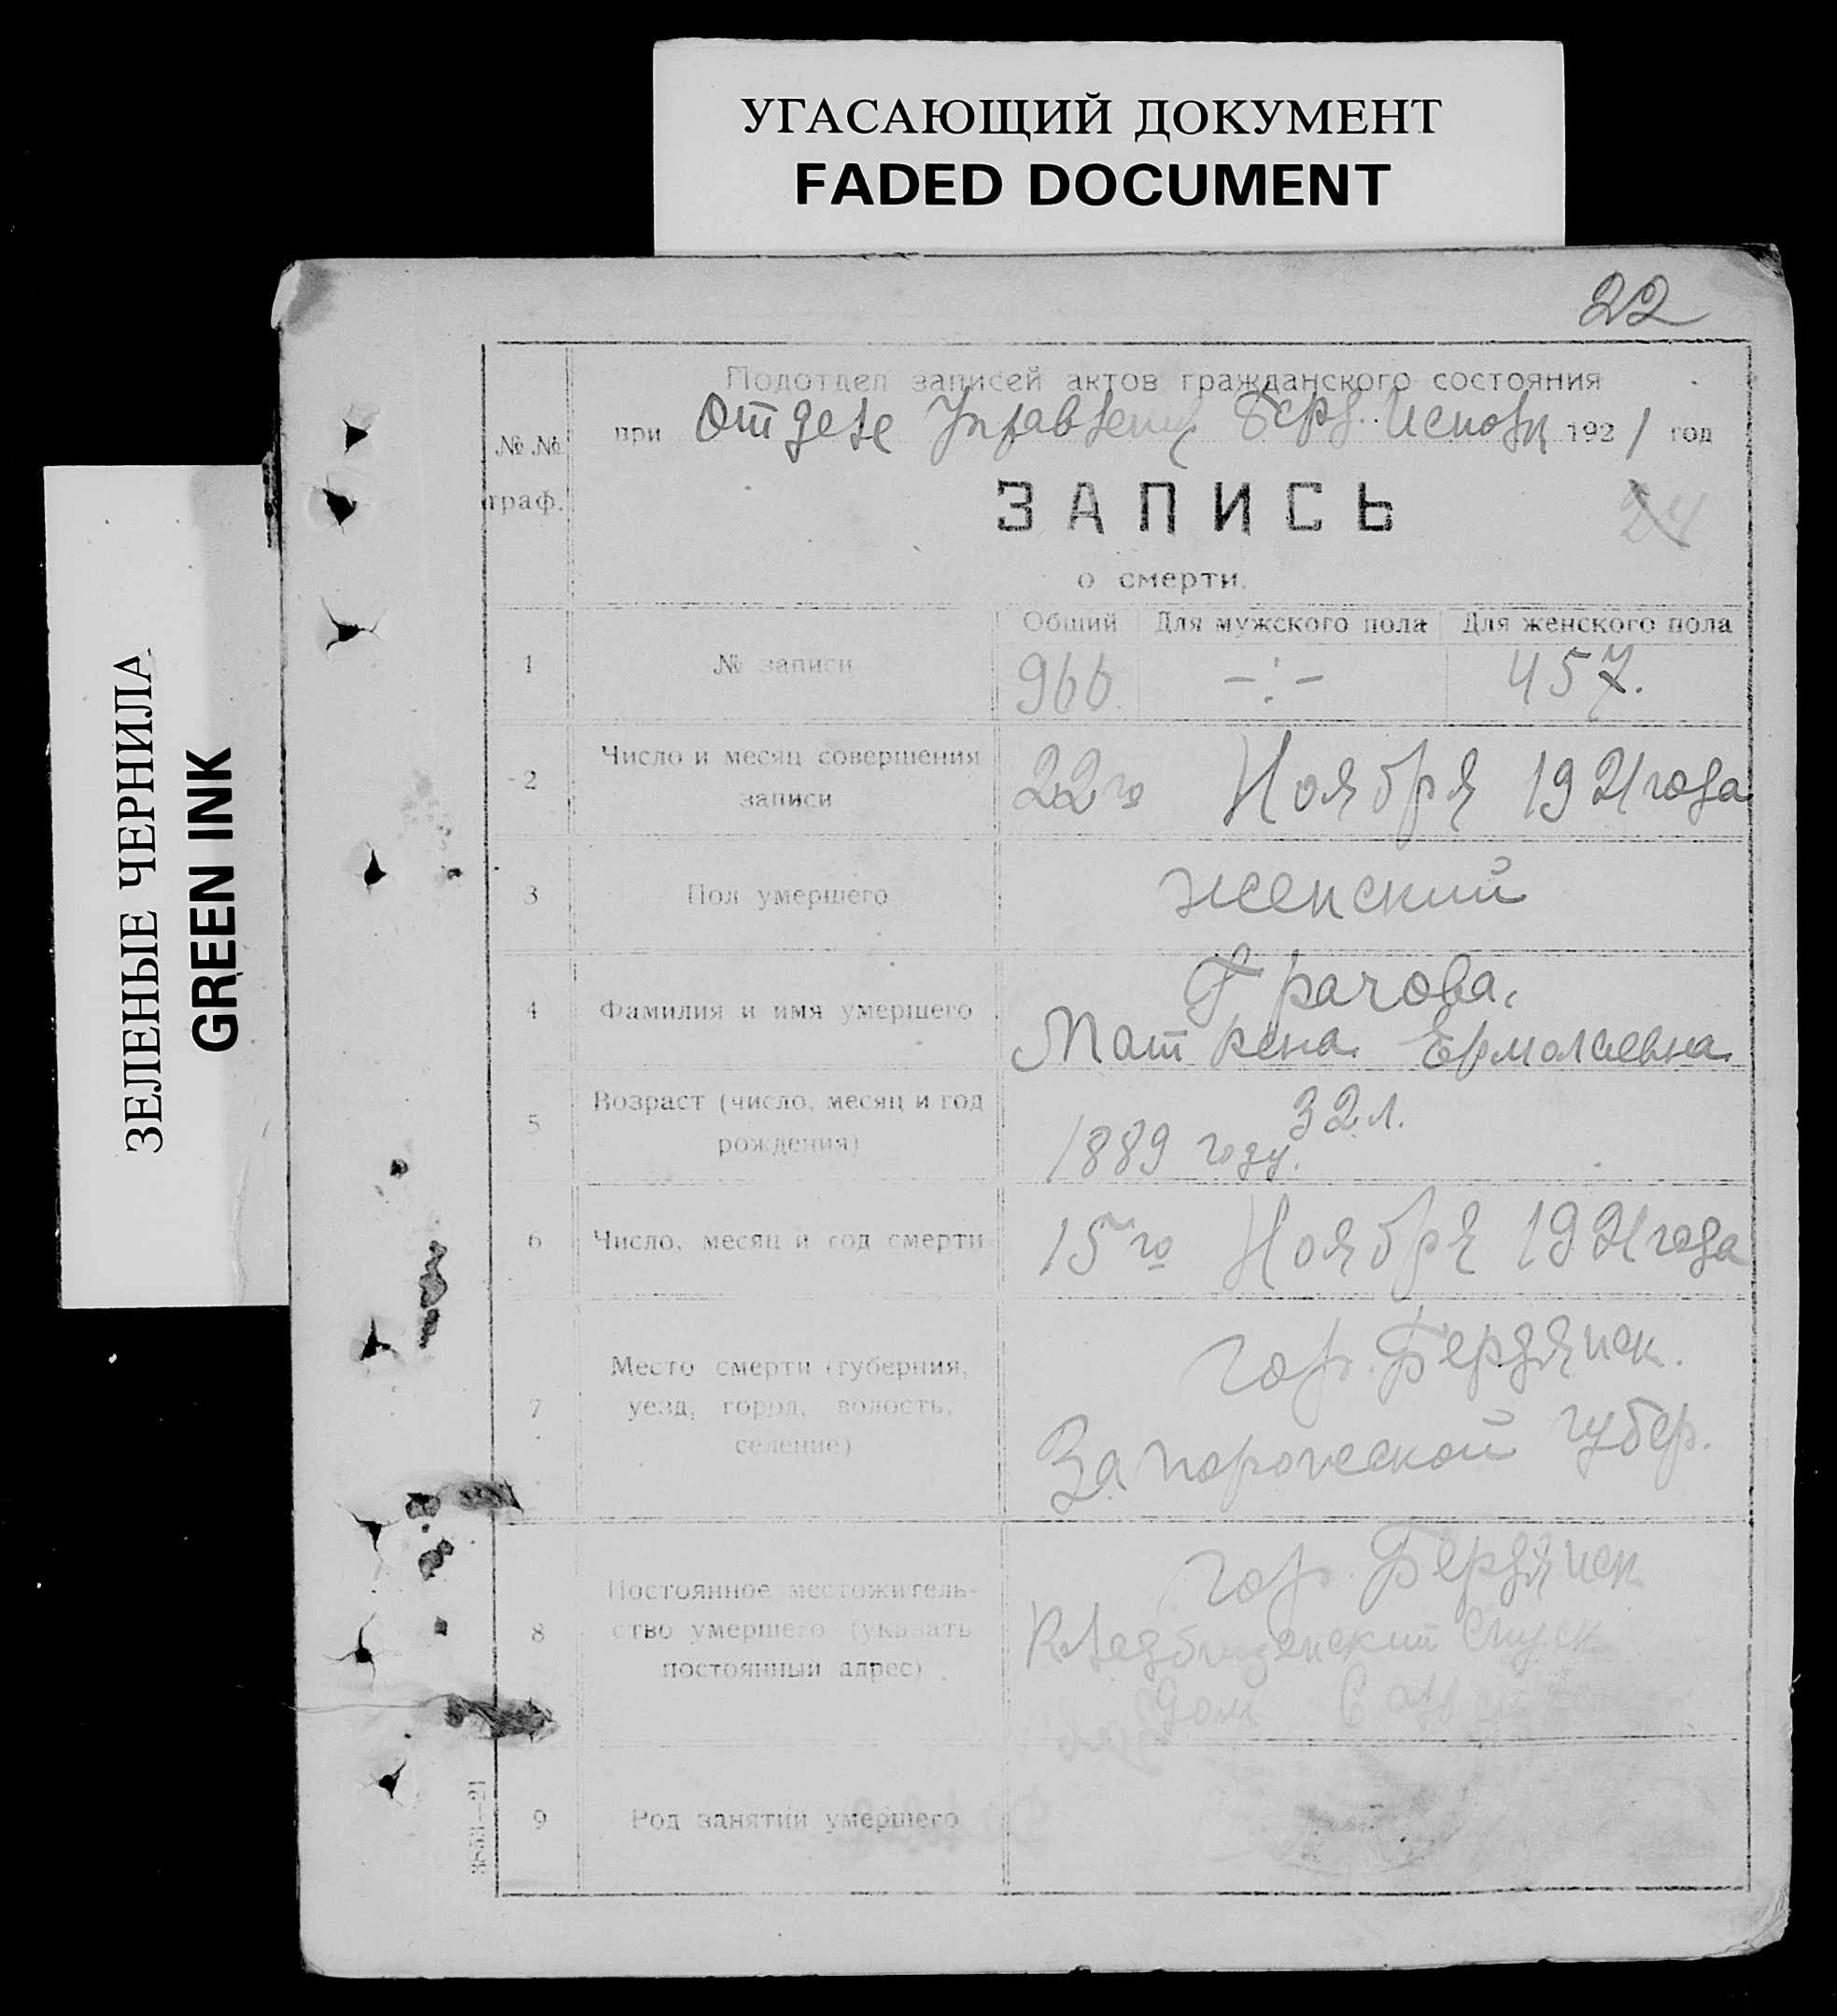 УГАСАЮЩИЙ ДОКУМЕНТ
FADED DOCUMENT
ЗЕЛЕНЫЕ ЧЕРНИЛА
GREEN INK
22
Подотдел записей актов гражданского состояния
№ № граф.
при Отделе Управления Берд. Исполк 1921 год
ЗАПИСЬ
24
о смерти.
Общий Для мужского пола Для женского пола
1 № записи 966 -:- 457.
2 Число и месяц совершения
записи
22го Ноября 1921 года
3 Пол умершего женский
4 Фамилия и имя умершего
Грачова.
Матрена Ермолаевна
5 Возраст (число, месяц и год
рождения)
32 л.
1889 году.
6 Число, месяц и год смерти 15го Ноября 1921 года
7 Место смерти (губерния,
уезд, город, волость,
селение)
гор. Бердянск.
Запорожской губер.
8 Постоянное местожитель-
ство умершего (указать
постоянный адрес)
гор. Бердянск
спуск
дом
9 Род занятий умершего
3853—21